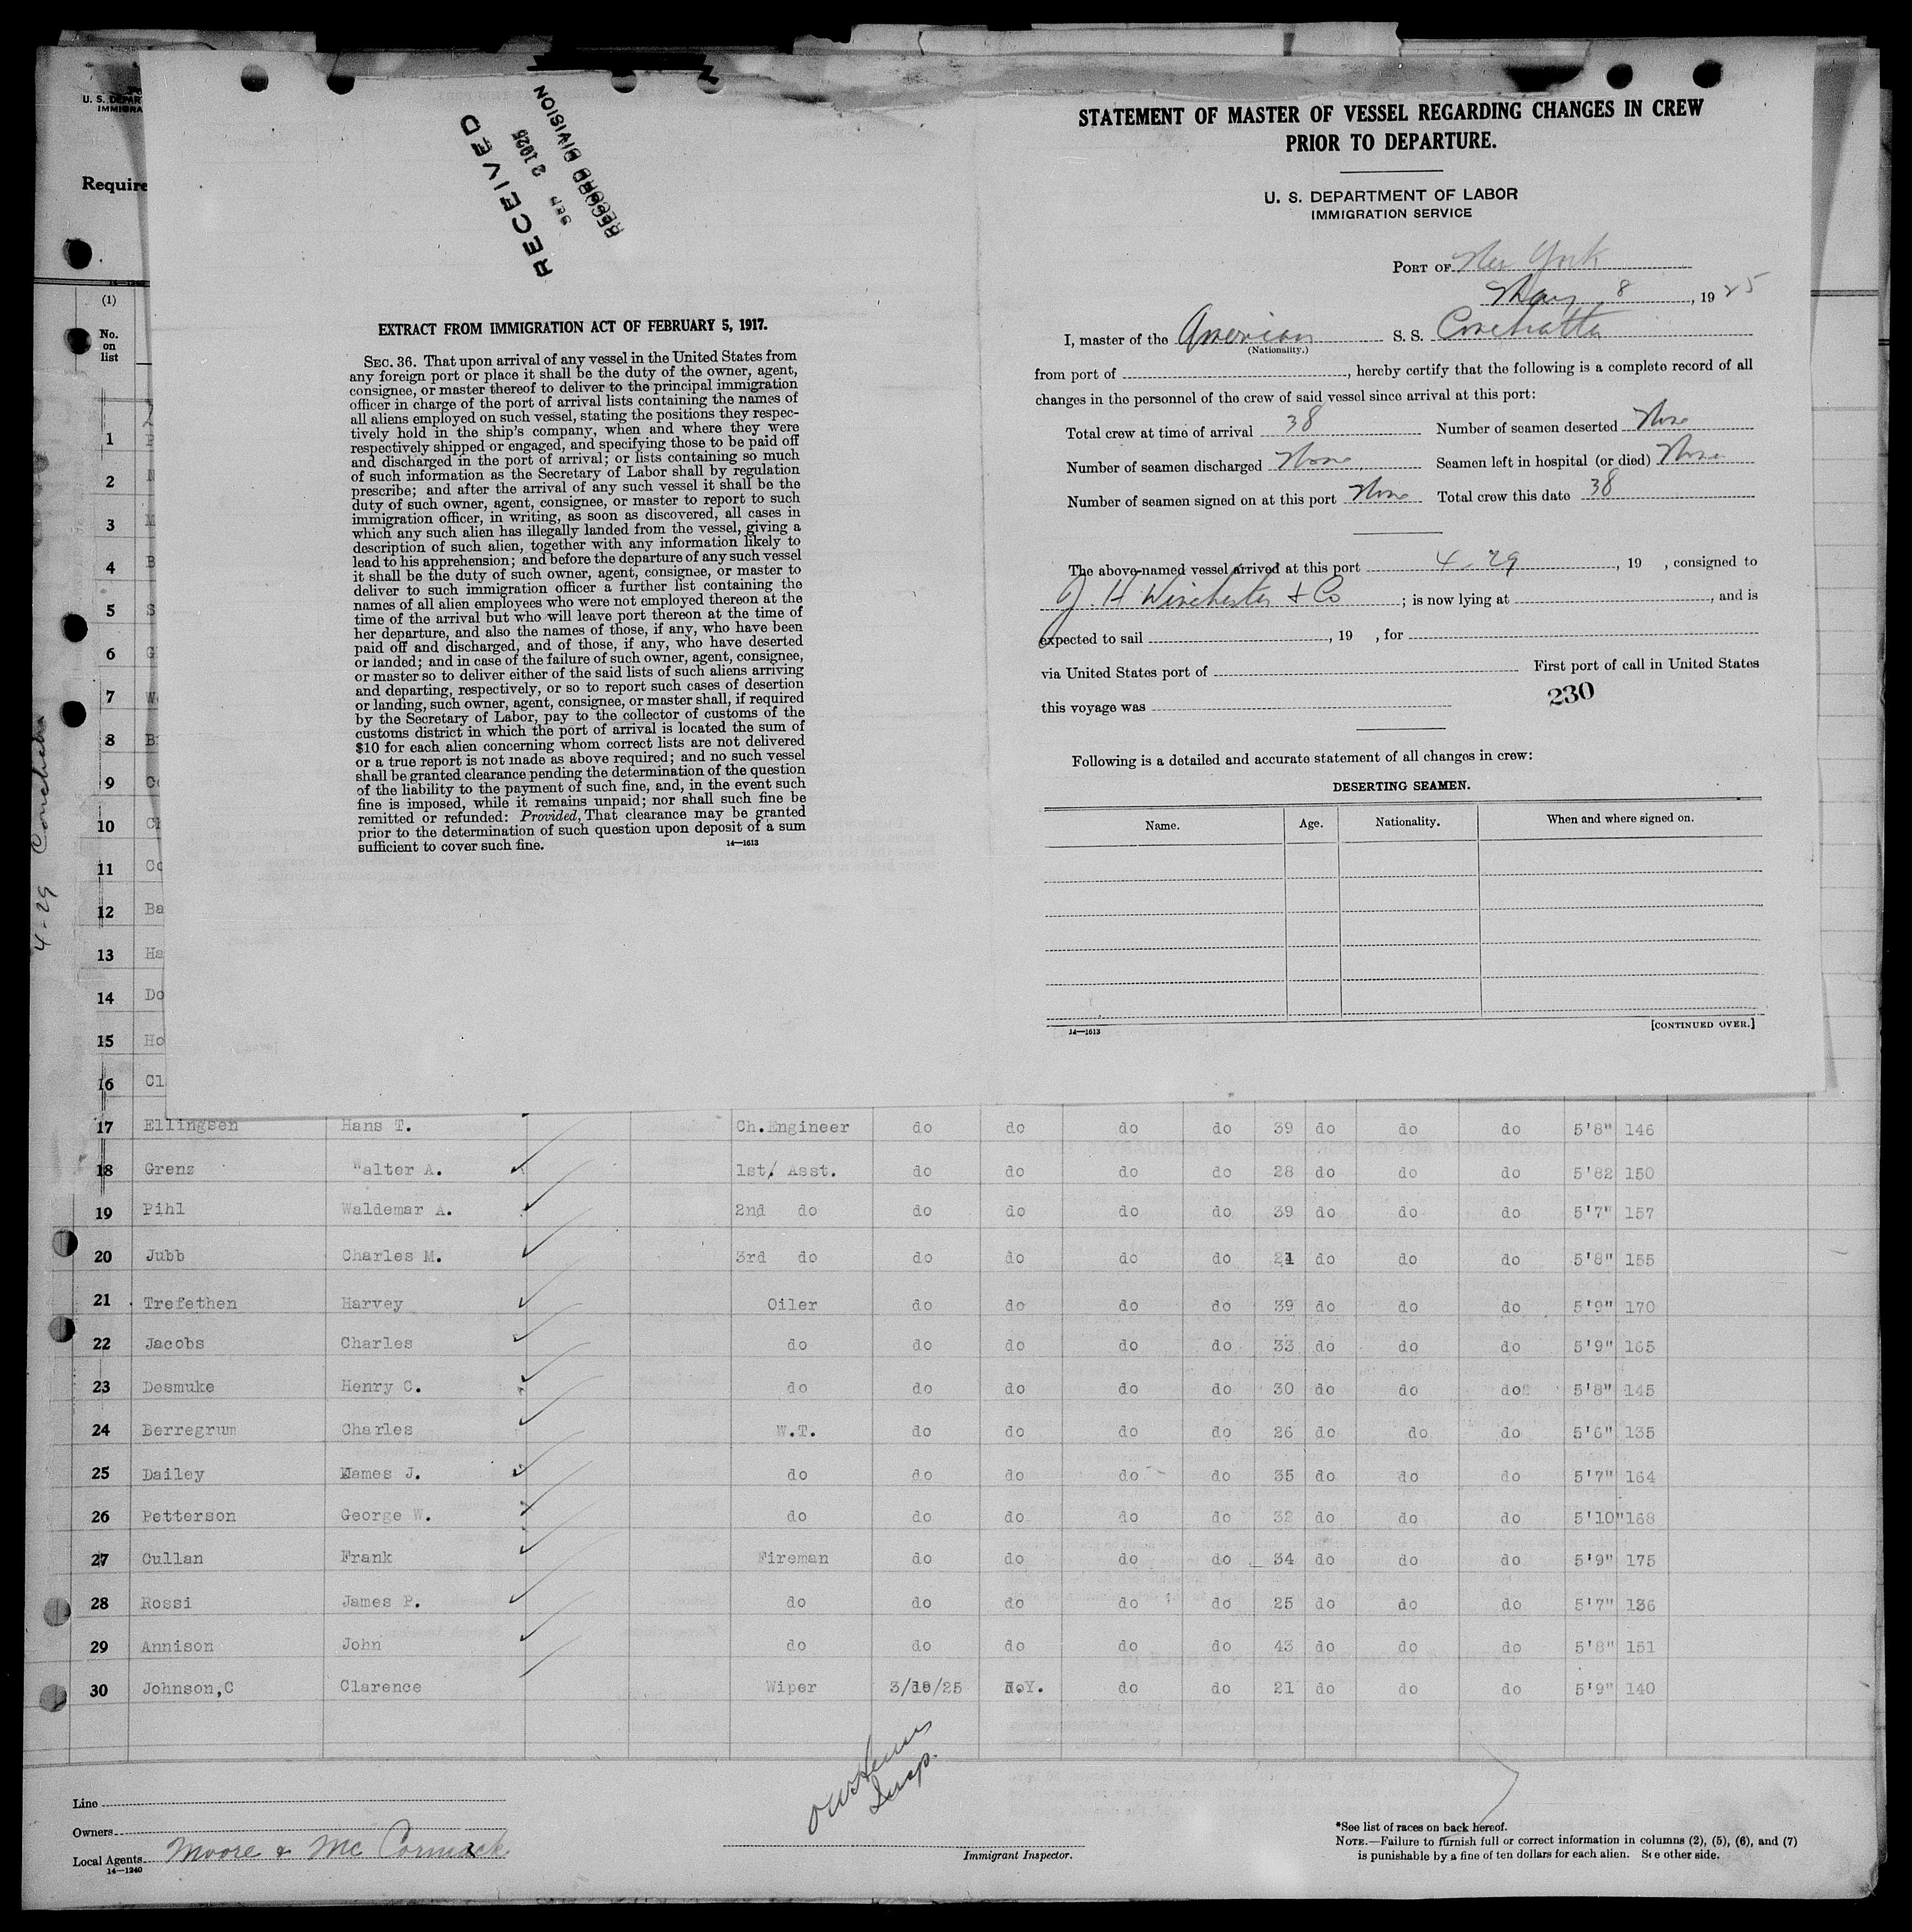 U. S. DEPART
IMMIGRA
Require
RECEIVED
SEP 2 1925
RECORD DIVISION
EXTRACT FROM IMMIGRATION ACT OF FEBRUARY 5, 1917.
SEC. 36. That upon arrival of any vessel in the United States from
any foreign port or place it shall be the duty of the owner, agent,
consignee, or master thereof to deliver to the principal immigration
officer in charge of the port of arrival lists containing the names of
all aliens employed on such vessel, stating the positions they respec-
tively hold in the ship's company, when and where they were
respectively shipped or engaged, and specifying those to be paid off
and discharged in the port of arrival; or lists containing so much
of such information as the Secretary of Labor shall by regulation
prescribe; and after the arrival of any such vessel it shall be the
duty of such owner, agent, consignee, or master to report to such
immigration officer, in writing, as soon as discovered, all cases in
which any such alien has illegally landed from the vessel, giving a
description of such alien, together with any information likely to
lead to his apprehension; and before the departure of any such vessel
it shall be the duty of such owner, agent, consignee, or master to
deliver to such immigration officer a further list containing the
names of all alien employees who were not employed thereon at the
time of the arrival but who will leave port thereon at the time of
her departure, and also the names of those, if any, who have been
paid off and discharged, and of those, if any, who have deserted
or landed; and in case of the failure of such owner, agent, consignee,
or master so to deliver either of the said lists of such aliens arriving
and departing, respectively, or so to report such cases of desertion
or landing, such owner, agent, consignee, or master shall, if required
by the Secretary of Labor, pay to the collector of customs of the
customs district in which the port of arrival is located the sum of
$10 for each alien concerning whom correct lists are not delivered
or a true report is not made as above required; and no such vessel
shall be granted clearance pending the determination of the question
of the liability to the payment of such fine, and, in the event such
fine is imposed, while it remains unpaid; nor shall such fine be
remitted or refunded: Provided, That clearance may be granted
prior to the determination of such question upon deposit of a sum
sufficient to cover such fine. 14—1613
STATEMENT OF MASTER OF VESSEL REGARDING CHANGES IN CREW
PRIOR TO DEPARTURE.
U. S. DEPARTMENT OF LABOR
IMMIGRATION SERVICE
PORT OF New York
May 8, 1925
I, master of the American S. S. Coushatta
(Nationality.)
from port of , hereby certify that the following is a complete record of all
changes in the personnel of the crew of said vessel since arrival at this port:
Total crew at time of arrival 38 Number of seamen deserted None
Number of seamen discharged None Seamen left in hospital (or died) None
Number of seamen signed on at this port None Total crew this date 38
The above-named vessel arrived at this port 4-29, 19 , consigned to
J. H Winchester & Co ; is now lying at , and is
expected to sail , 19 , for
via United States port of First port of call in United States
this voyage was 230
Following is a detailed and accurate statement of all changes in crew:
DESERTING SEAMEN.
Name. Age. Nationality. When and where signed on.
14—1613 [CONTINUED OVER.]
4-29 Coushatta
(1)
No.
on
list
1
2
3
4 B
5 S
6 G
7 W
8 B
9 Co
10 Cl
11 Co
12 Ba
13 Ha
14 Do
15 Ho
16 Cl
17 Ellingsen Hans T. Ch.Engineer do do do do 39 do do do 5'8" 146
18 Grenz Walter A. 1st/ Asst. do do do do 28 do do do 5'82 150
19 Pihl Waldemar A. 2nd do do do do do 39 do do do 5'7" 157
20 Jubb Charles M. 3rd do do do do do 21 do do do 5'8" 155
21 Trefethen Harvey Oiler do do do do 39 do do do 5'9" 170
22 Jacobs Charles do do do do do 33 do do do 5'9" 165
23 Desmuke Henry C. do do do do do 30 do do do 5'8" 145
24 Berregrum Charles W.T. do do do do 26 do do do 5'6" 135
25 Dailey James J. do do do do do 35 do do do 5'7" 164
26 Petterson George W. do do do do do 32 do do do 5'10" 168
27 Cullan Frank Fireman do do do do 34 do do do 5'9" 175
28 Rossi James P. do do do do do 25 do do do 5'7" 136
29 Annison John do do do do do 43 do do do 5'8" 151
30 Johnson,C Clarence Wiper 3/19/25 N.Y. do do 21 do do do 5'9" 140
Insp.
Line
Owners
Local Agents Moore & Mc Cormack
14—1240
Immigrant Inspector.
*See list of races on back hereof.
NOTE.—Failure to furnish full or correct information in columns (2), (5), (6), and (7)
is punishable by a fine of ten dollars for each alien. See other side.